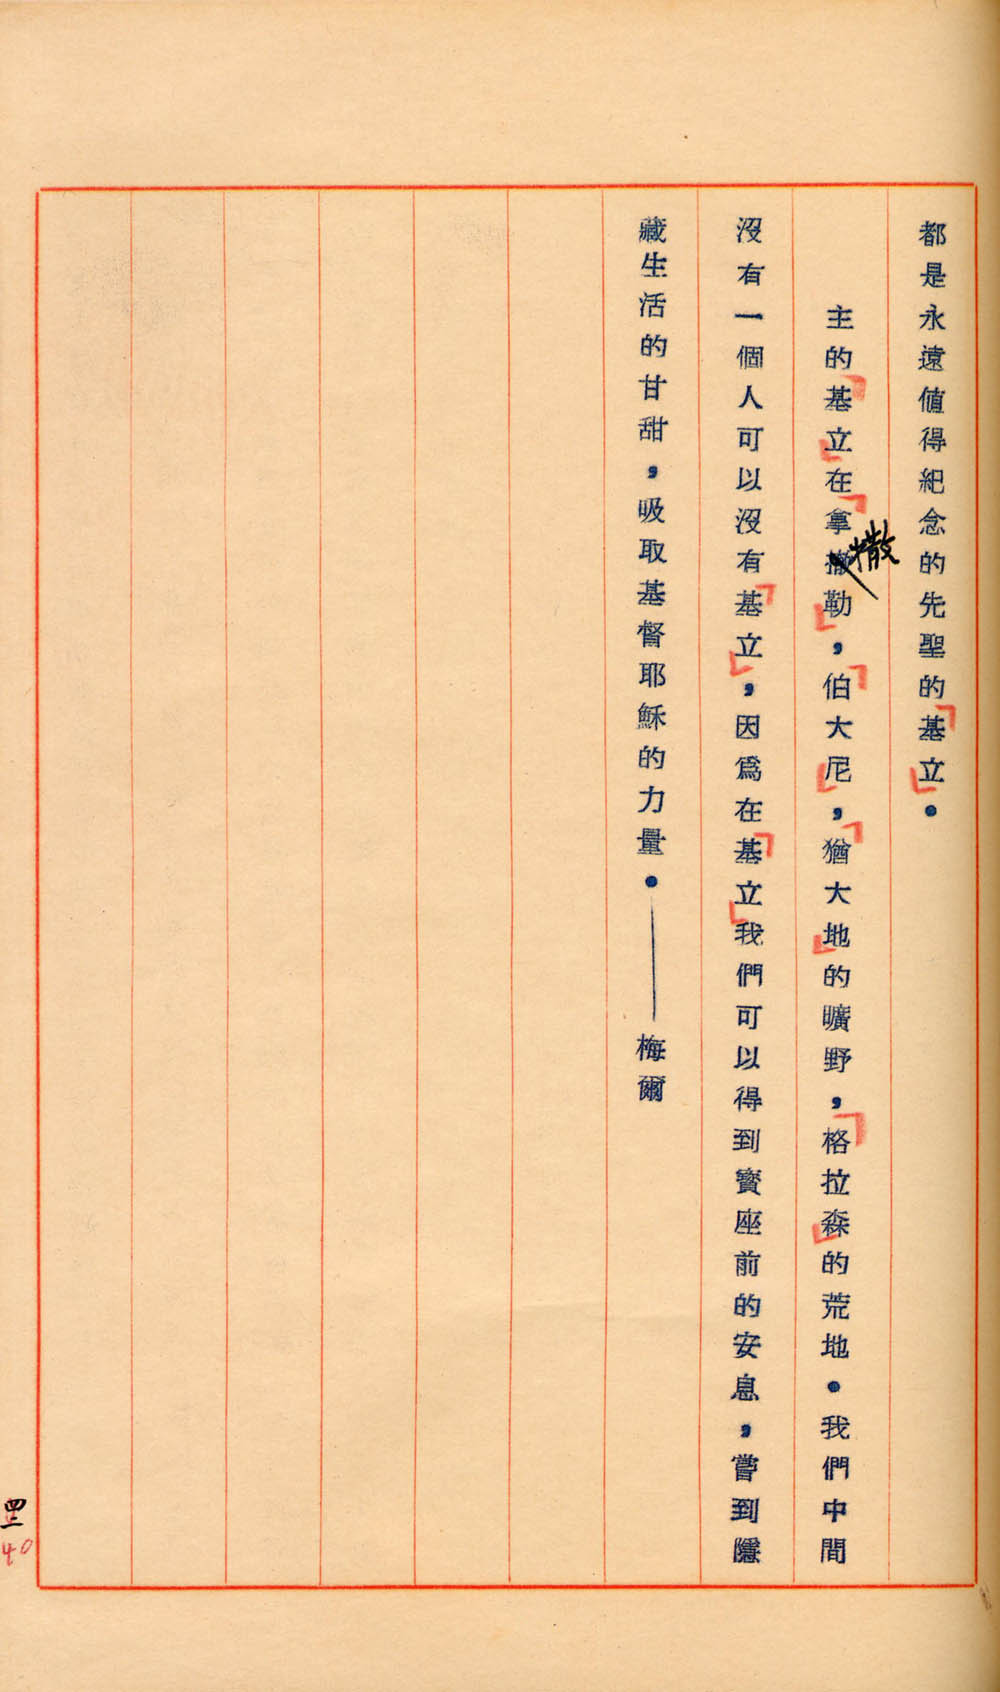 都是永遠值得紀念的先聖的「基立」。
主的「基立」在「拿撒勒」，「伯大尼」，「猶大地」的曠野，「格拉森」的荒地。我們中間
沒有一個人可以沒有「基立」，因爲在「基立」我們可以得到寶座前的安息，嘗到隱
藏生活的甘甜，吸取基督耶穌的力量。——梅爾
40